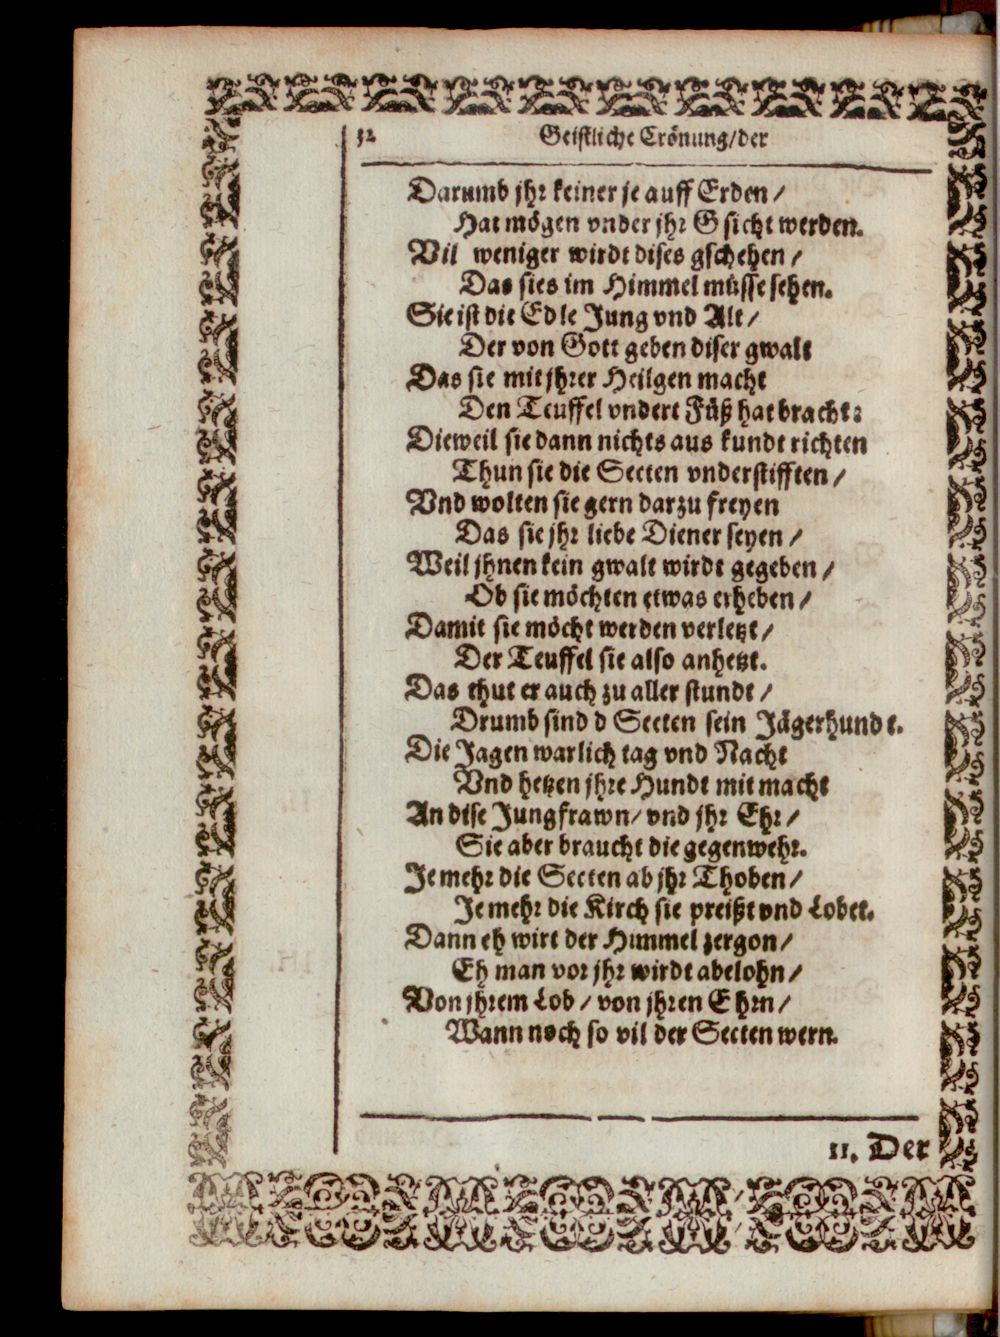 32 Geistliche Crönung/der
Darumb jhr keiner je auff Erden/
Hat mögen vnder jhr Gsicht werden.
Vil weniger wirdt dises gschehen/
Das sies im Himmel müsse sehen.
Sie ist die Edle Jung vnd Alt/
Der von Gott geben diser gwalt
Das sie mit jhrer Heilgen macht
Den Teuffel vndert Füß hat bracht:
Dieweil sie dann nichts aus kundt richten
Thun sie die Secten vnderstifften/
Vnd wolten sie gern darzu freyen
Das sie jhr liebe Diener seyen/
Weil jhnen kein gwalt wirdt gegeben/
Ob sie möchten etwas erheben/
Damit sie möcht werden verletzt/
Der Teuffel sie also anhetzt.
Das thut er auch zu aller stundt/
Drumb sind d Secten sein Jägerhundt.
Die Jagen warlich tag vnd Nacht
Vnd hetzen jhre Hundt mit macht
An dise Jungfrawn/vnd jhr Ehr/
Sie aber braucht die gegenwehr.
Je mehr die Secten ab jhr Thoben/
Je mehr die Kirch sie preißt vnd Lobet.
Dann eh wirt der Himmel zergon/
Eh man vor jhr wirdt abelohn/
Von jhrem Lob/von jhren Ehrn/
Wann noch so vil der Secten wern.
11. Der